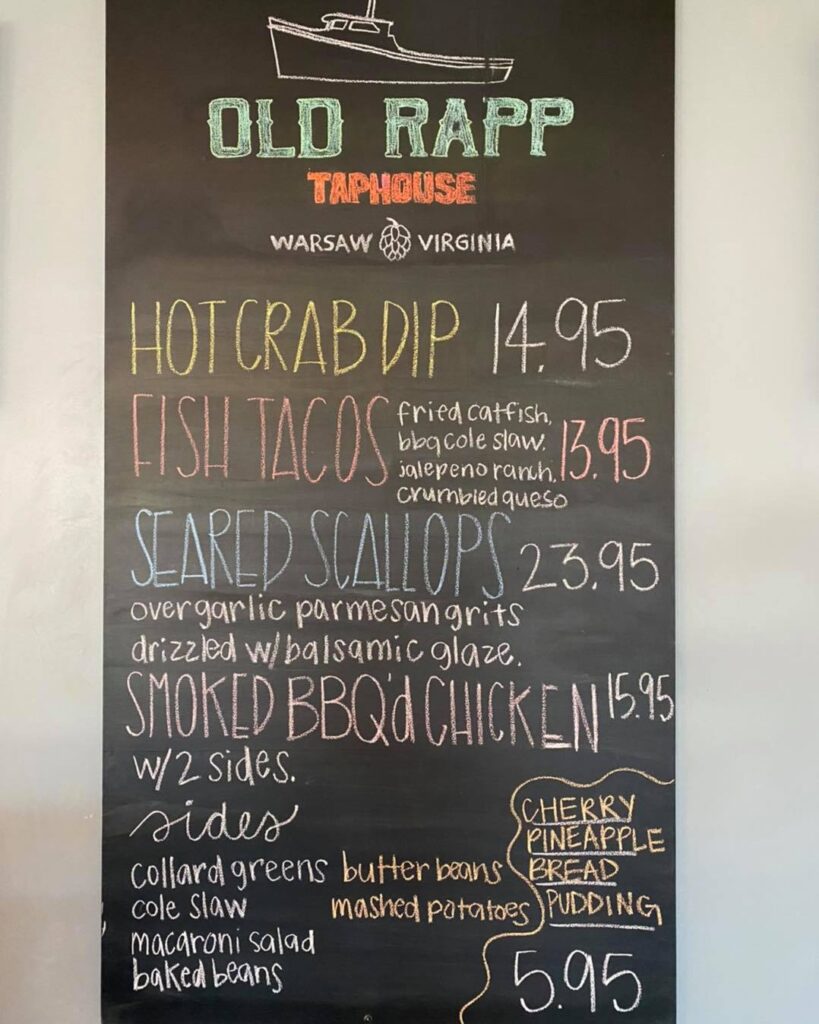 OLD RAPP
TAPHOUSE
WARSAW VIRGINIA
HOT CRAB DIP 14.95
FISH TACOS fried catfish, bbq cole slaw, jalepeno ranch, crumbled queso 13.95
SEARED SCALLOPS 23.95
over garlic parmesan grits
drizzled w/ balsamic glaze.
SMOKED BBQ'd CHICKEN 15.95
w/ 2 sides.
sides
collard greens butter beans
cole slaw mashed potatoes
macaroni salad
baked beans
CHERRY
PINEAPPLE
BREAD
PUDDING
5.95